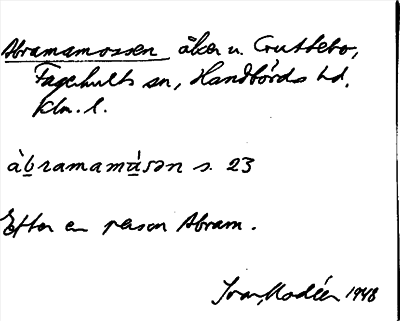 Abramamossen åker u. Cruttebo,
Fagerhults sn, Handbörds hd.
Klm. l.
àbramamåsən s. 23
Efter en person Abram.
Ivar Modéer 1948